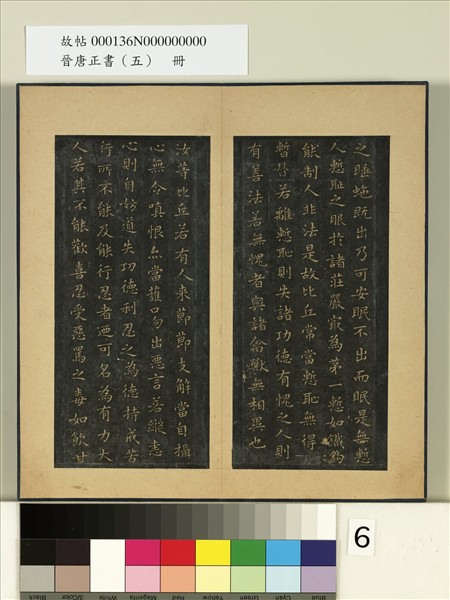 故帖 000136N000000000
晉唐正書（五） 冊
之睡蛇既出乃可安眠不出而眠是無慙
人慙恥之服於諸莊嚴㝡為第一慙如鐵鉤
能制人非法是故比丘常當慙恥無得
暫替若離慙恥則失諸功德有愧之人則
有善法若無愧者與諸禽獸無相異也
汝等比丘若有人來節節支解當自攝
心無令嗔恨亦當護口勿出惡言若縱恚
心則自妨道失功德利忍之為德持戒苦
行所不能及能行忍者迺可名為有力大
人若其不能歡喜忍受惡罵之毒如飲甘
6
Black
3/Color
White
Magenta
Red
Yellow
Green
Cyan
Blue